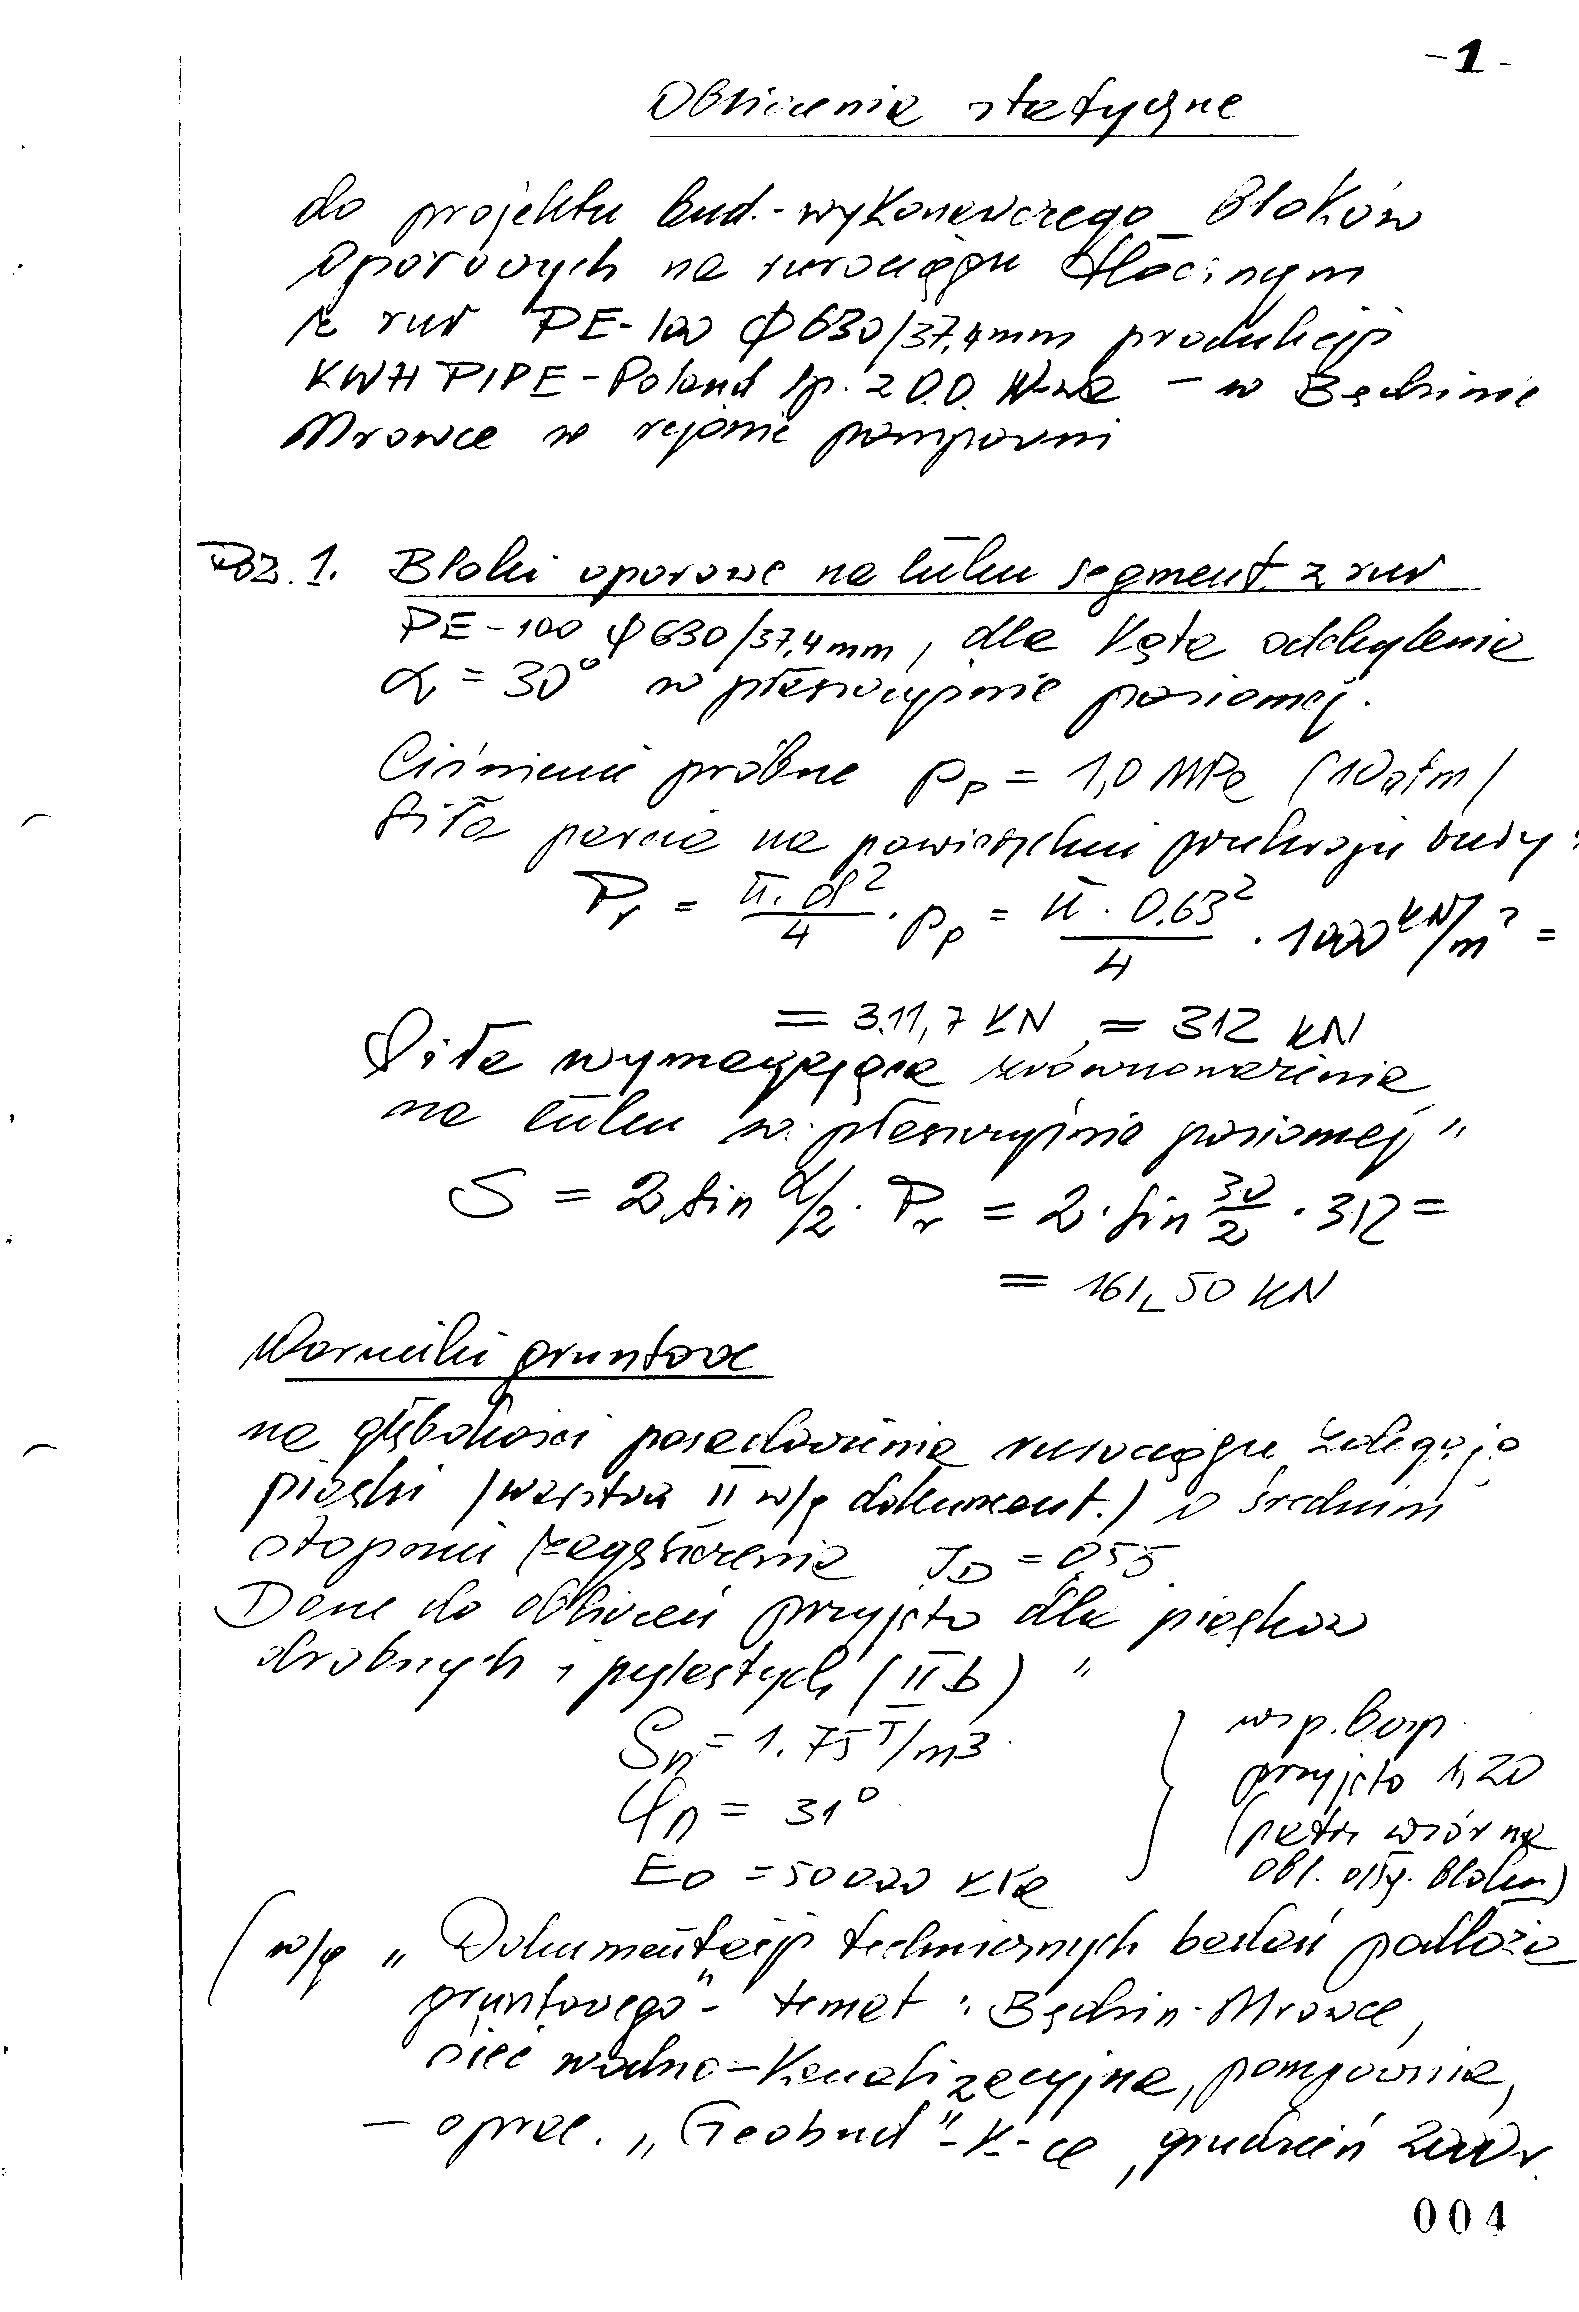 -1-
Obliczenia statyczne
do projektu bud.-wykonawczego bloków
oporowych na rurociągu tłocznym
z rur PE-100 φ630/37,4mm produkcji
KWH PIPE-Poland Sp. z O.O. W-wa – w Będzinie
Mrowce w rejonie pompowni
Poz. 1. Bloki oporowe na łuku segment. z rur
PE-100 φ630/37,4mm, dla kąta odchylenia
α = 30° w płaszczyźnie poziomej.
Ciśnienie próbne pp = 1,0 MPa (10 atm)
Siła parcia na powierzchni przekroju rury:
Pr = π·d²/4 · pp = π·0.63²/4 · 1000 kN/m² =
= 311,7 KN = 312 kN
Siła wymagająca zrównoważenia
na łuku w płaszczyźnie poziomej "
S = 2 sin α/2 · Pr = 2 · sin 30/2 · 312 =
= 161,50 kN
Warunki gruntowe
na głębokości posadowienia rurociągu zalegają
piaski (warstwa II w/g dokument.) o średnim
stopniu zagęszczenia ID = 0,55
Dane do obliczeń przyjęto dla piasków
drobnych i pylastych (II b) "
ρn = 1.75 T/m3
φn = 31°
E0 = 50000 kPa
wsp. bezp.
przyjęto 1,20
(patrz wzór na
obl. obj. bloku)
(w/g „Dokumentacji technicznych badań podłoża
gruntowego" - temat : Będzin-Mrowce,
sieć wodno-kanalizacyjna, pompownia,
– oprac. „Geobud" - K-ce, grudzień 2000r.
004